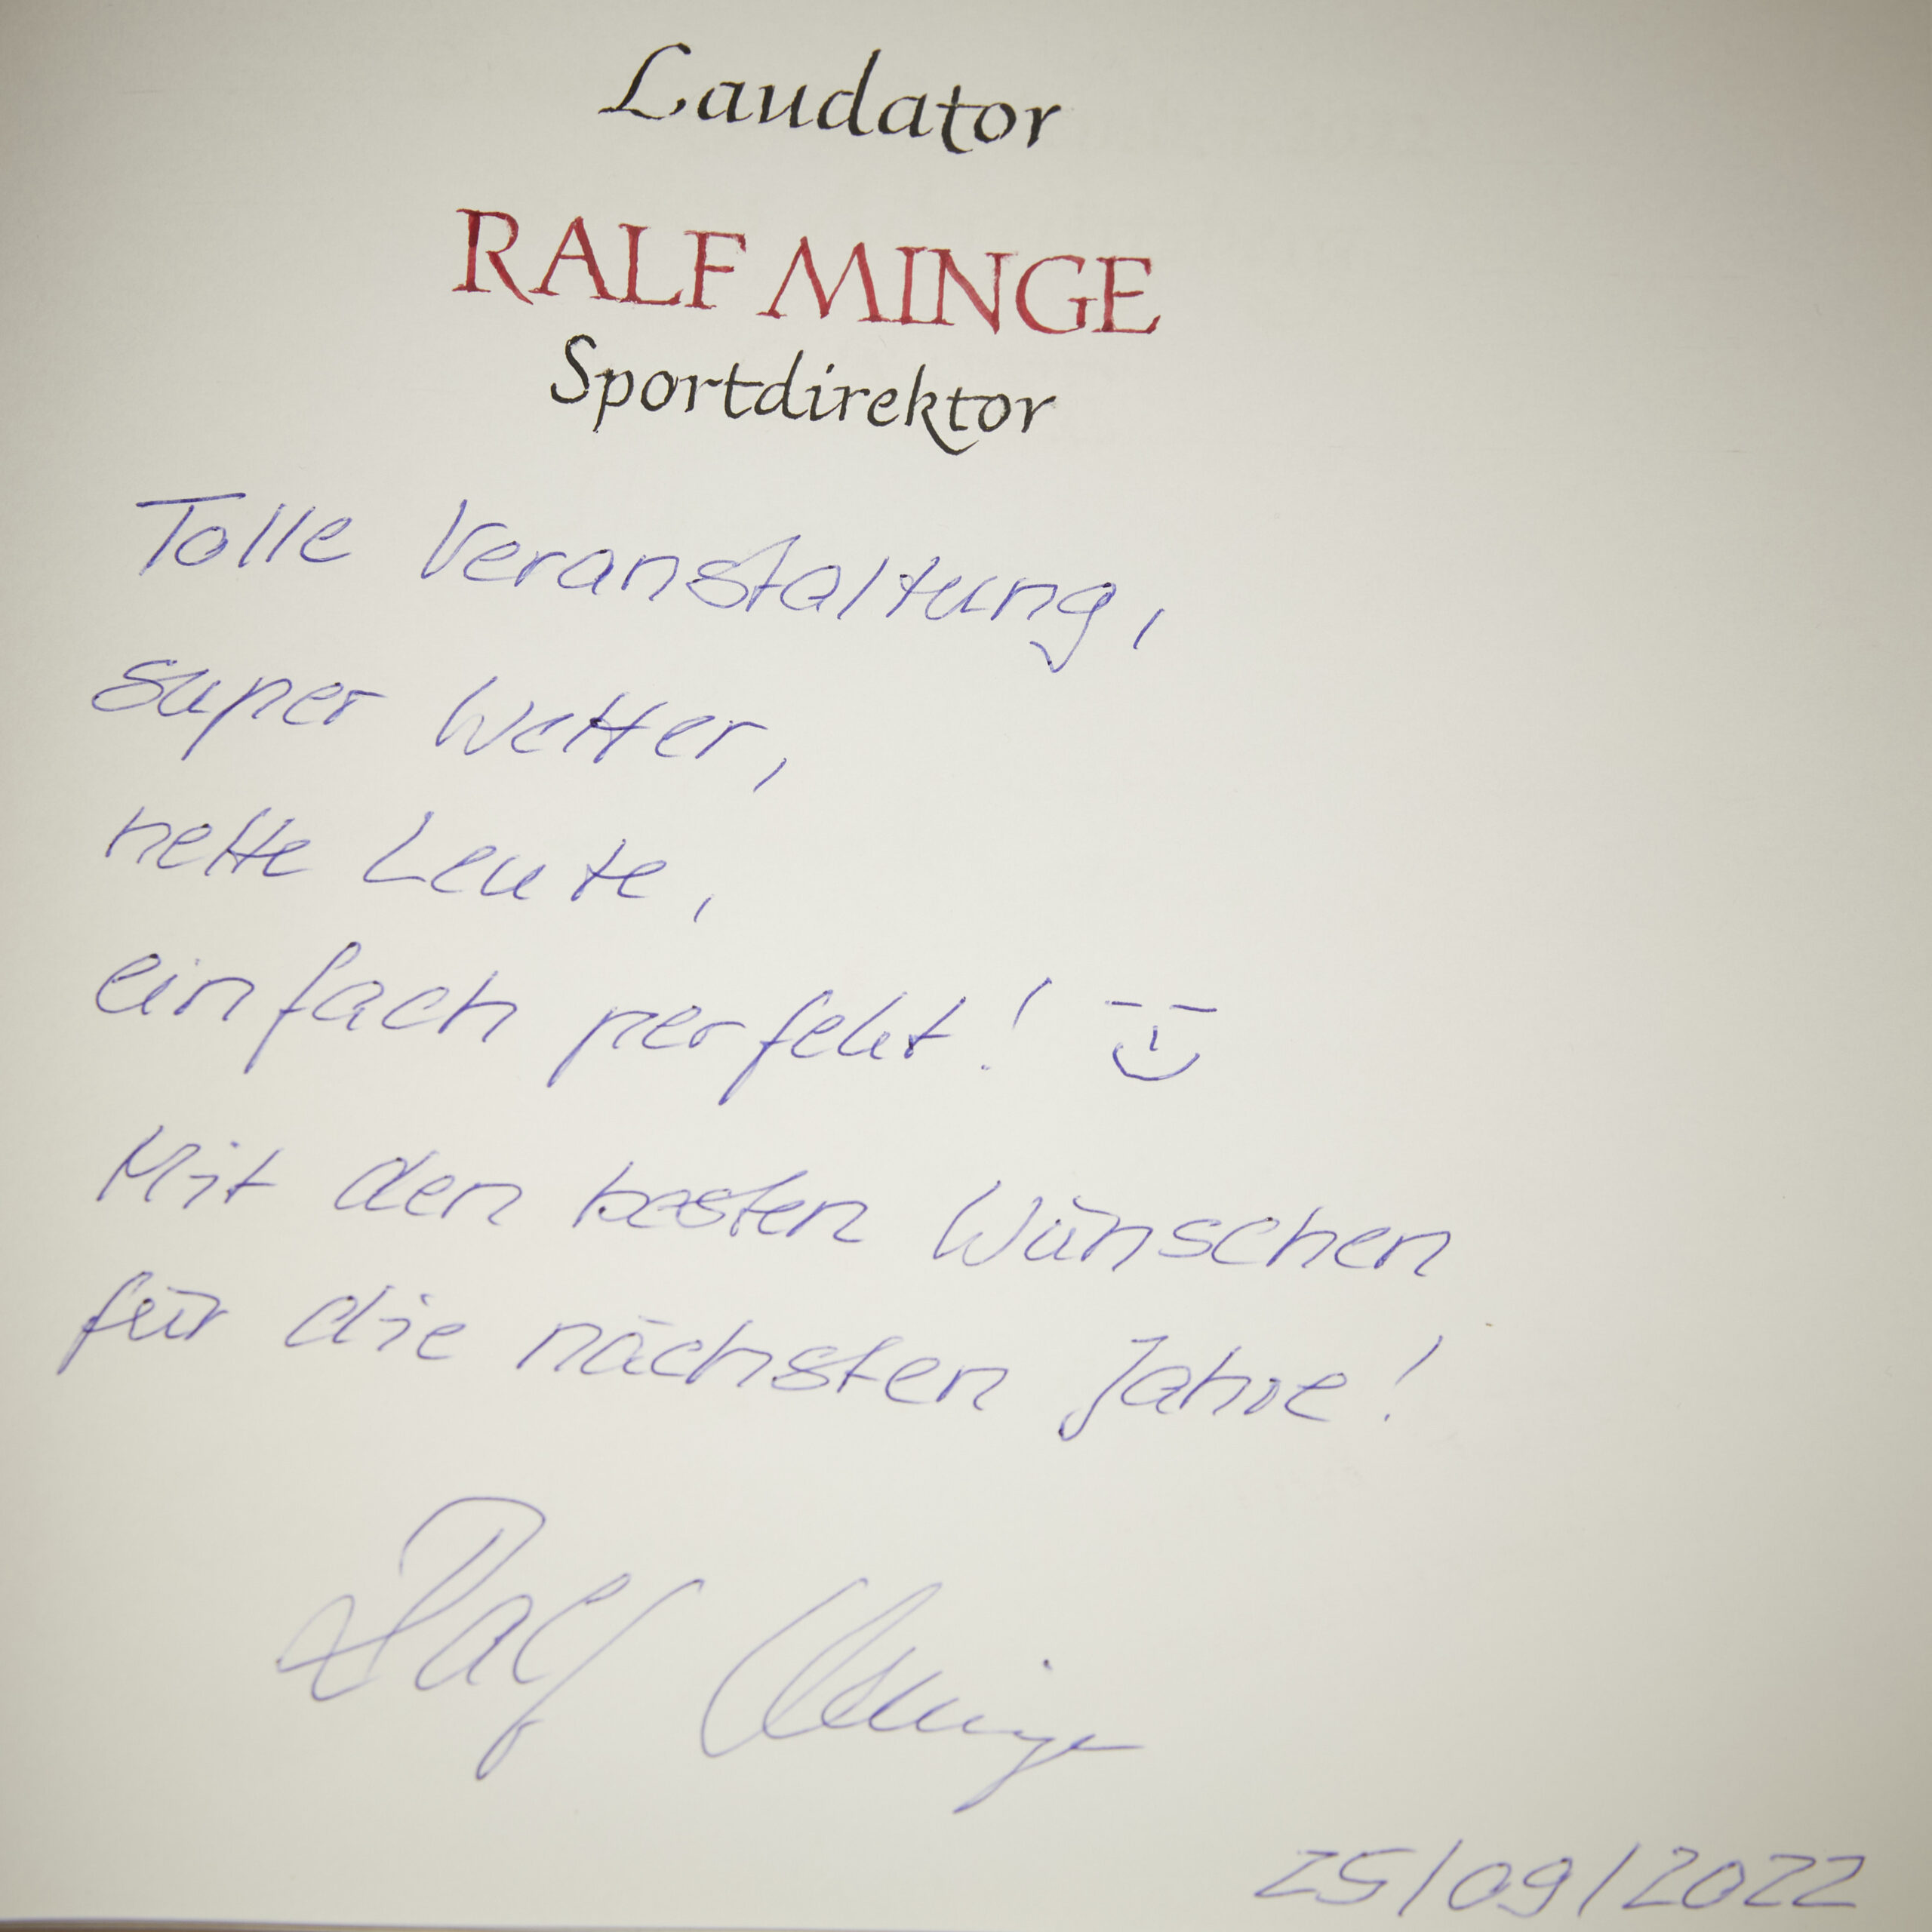 Laudator
RALF MINGE
Sportdirektor
Tolle Veranstaltung,
super Wetter,
nette Leute,
einfach perfekt!
Mit den besten Wünschen
für die nächsten Jahre!
Ralf Minge
25/09/2022